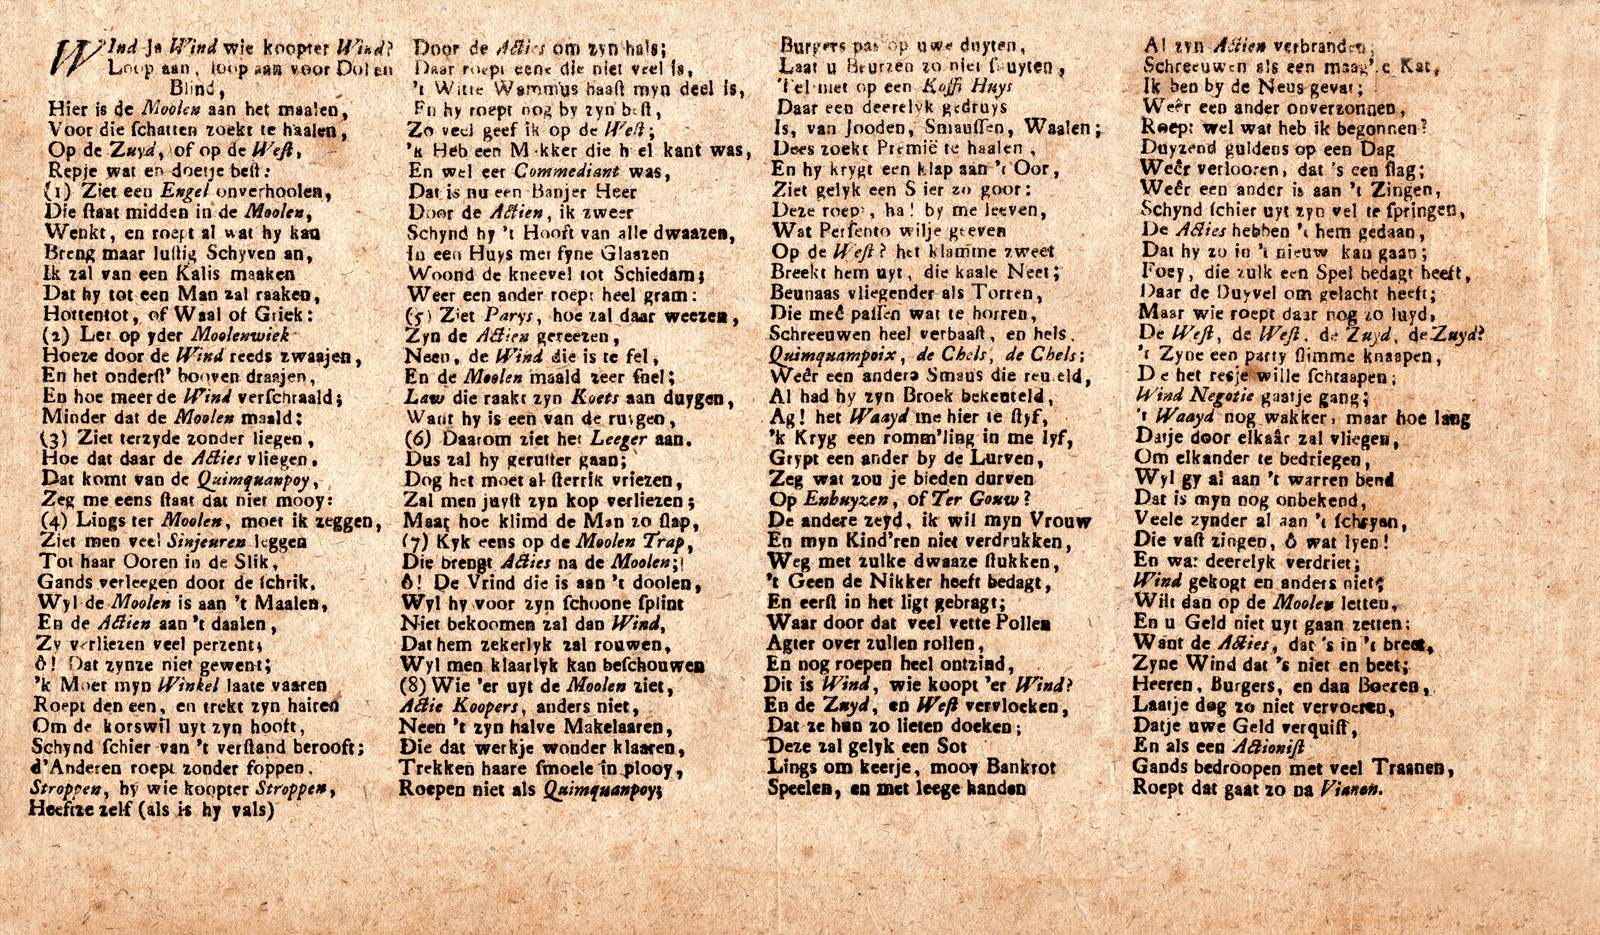 WInd ja Wind wie koopter Wind?
Loop aan, loop aan voor Dol en
Blind,
Hier is de Moolen aan het maalen,
Voor die ſchatten zoekt te haalen,
Op de Zuyd, of op de Weſt,
Repje wat en doetje beſt:
(1) Ziet een Engel onverhoolen,
Die ſtaat midden in de Moolen,
Wenkt, en roept al wat hy kan
Breng maar luſtig Schyven an,
Ik zal van een Kalis maaken
Dat hy tot een Man zal raaken,
Hottentot, of Waal of Griek:
(2) Let op yder Moolenwiek
Hoeze door de Wind reeds zwaajen,
En het onderſt' booven draajen,
En hoe meer de Wind verſchraald;
Minder dat de Moolen maald:
(3) Ziet terzyde zonder liegen,
Hoe dat daar de Acties vliegen,
Dat komt van de Quimquanpoy,
Zeg me eens ſtaat dat niet mooy:
(4) Lings ter Moolen, moet ik zeggen,
Ziet men veel Sinjeuren leggen
Tot haar Ooren in de Slik,
Gands verleegen door de ſchrik,
Wyl de Moolen is aan 't Maalen,
En de Actien aan 't daalen,
Zy verliezen veel perzent;
ô! Dat zynze niet gewent;
'k Moet myn Winkel laate vaaren
Roept den een, en trekt zyn hairen
Om de korswil uyt zyn hooft,
Schynd ſchier van 't verſtand berooft;
d'Anderen roept zonder foppen,
Stroppen, hy wie koopter Stroppen,
Heeftze zelf (als is hy vals)
Door de Acties om zyn hals;
Daar roept eene die niet veel is,
't Witte Wammus haaſt myn deel is,
En hy roept nog by zyn beſt,
Zo veel geef ik op de Weſt;
'k Heb een Makker die heel kant was,
En wel eer Commediant was,
Dat is nu een Banjer Heer
Door de Actien, ik zweer
Schynd hy 't Hooft van alle dwaazen,
In een Huys met fyne Glaazen
Woond de kneevel tot Schiedam;
Weer een ander roept heel gram:
(5) Ziet Parys, hoe zal daar weezen,
Zyn de Actien gereezen,
Neen, de Wind die is te fel,
En de Moolen maald zeer ſnel;
Law die raakt zyn Koets aan duygen,
Want hy is een van de ruygen,
(6) Daarom ziet het Leeger aan.
Dus zal hy geruſter gaan;
Dog het moet al ſterrik vriezen,
Zal men juyſt zyn kop verliezen;
Maar hoe klimd de Man zo ſlap,
(7) Kyk eens op de Moolen Trap,
Die brengt Acties na de Moolen;
ô! De Vrind die is aan 't doolen,
Wyl hy voor zyn ſchoone ſplint
Niet bekoomen zal dan Wind,
Dat hem zekerlyk zal rouwen,
Wyl men klaarlyk kan beſchouwen
(8) Wie 'er uyt de Moolen ziet,
Actie Koopers, anders niet,
Neen 't zyn halve Makelaaren,
Die dat werkje wonder klaaren,
Trekken haare ſmoele in plooy,
Roepen niet als Quimquanpoy;
Burgers pas op uwe duyten,
Laat u Beurzen zo niet ſnuyten,
Tel niet op een Koffi Huys
Daar een deerelyk gedruys
Is, van Jooden, Smauſſen, Waalen;
Dees zoekt Premië te haalen,
En hy krygt een klap aan 't Oor,
Ziet gelyk een Stier zo goor:
Deze roept, ha! by me leeven,
Wat Perſento wilje geeven
Op de Weſt? het klamme zweet
Breekt hem uyt, die kaale Neet;
Beunaas vliegender als Torren,
Die meê paſſen wat te horren,
Schreeuwen heel verbaaſt, en hels,
Quimquampoix, de Chels, de Chels;
Weêr een andere Smaus die reuteld,
Al had hy zyn Broek bekeuteld,
Ag! het Waayd me hier te ſtyf,
'k Kryg een romm'ling in me lyf,
Grypt een ander by de Lurven,
Zeg wat zou je bieden durven
Op Enhuyzen, of Ter Gouw?
De andere zeyd, ik wil myn Vrouw
En myn Kind'ren niet verdrukken,
Weg met zulke dwaaze ſtukken,
't Geen de Nikker heeft bedagt,
En eerſt in het ligt gebragt;
Waar door dat veel vette Pollen
Agter over zullen rollen,
En nog roepen heel ontzind,
Dit is Wind, wie koopt 'er Wind?
En de Zuyd, en Weſt vervloeken,
Dat ze hun zo lieten doeken;
Deze zal gelyk een Sot
Lings om keerje, mooy Bankrot
Speelen, en met leege handen
Al zyn Actien verbranden,
Schreeuwen als een maag're Kat,
Ik ben by de Neus gevat;
Weêr een ander onverzonnen,
Roept wel wat heb ik begonnen?
Duyzend guldens op een Dag
Weêr verlooren, dat 's een ſlag;
Weêr een ander is aan 't Zingen,
Schynd ſchier uyt zyn vel te ſpringen,
De Acties hebben 't hem gedaan,
Dat hy zo in 't nieuw kan gaan;
Foey, die zulk een Spel bedagt heeft,
Daar de Duyvel om gelacht heeft;
Maar wie roept daar nog zo luyd,
De Weſt, de Weſt, de Zuyd, de Zuyd?
't Zyne een party ſlimme knaapen,
De het resje wille ſchraapen;
Wind Negotie gaatje gang;
't Waayd nog wakker, maar hoe lang
Datje door elkaâr zal vliegen,
Om elkander te bedriegen,
Wyl gy al aan 't warren bend
Dat is myn nog onbekend,
Veele zynder al aan 't ſchreyen,
Die vaſt zingen, ô wat lyen!
En wat deerelyk verdriet;
Wind gekogt en anders niet;
Wilt dan op de Moolen letten,
En u Geld niet uyt gaan zetten:
Want de Acties, dat 's in 't breet,
Zyne Wind dat 's niet en beet;
Heeren, Burgers, en dan Boeren,
Laatje dog zo niet vervoeren,
Datje uwe Geld verquiſt,
En als een Actioniſt
Gands bedroopen met veel Traanen,
Roept dat gaat zo na Vianen.